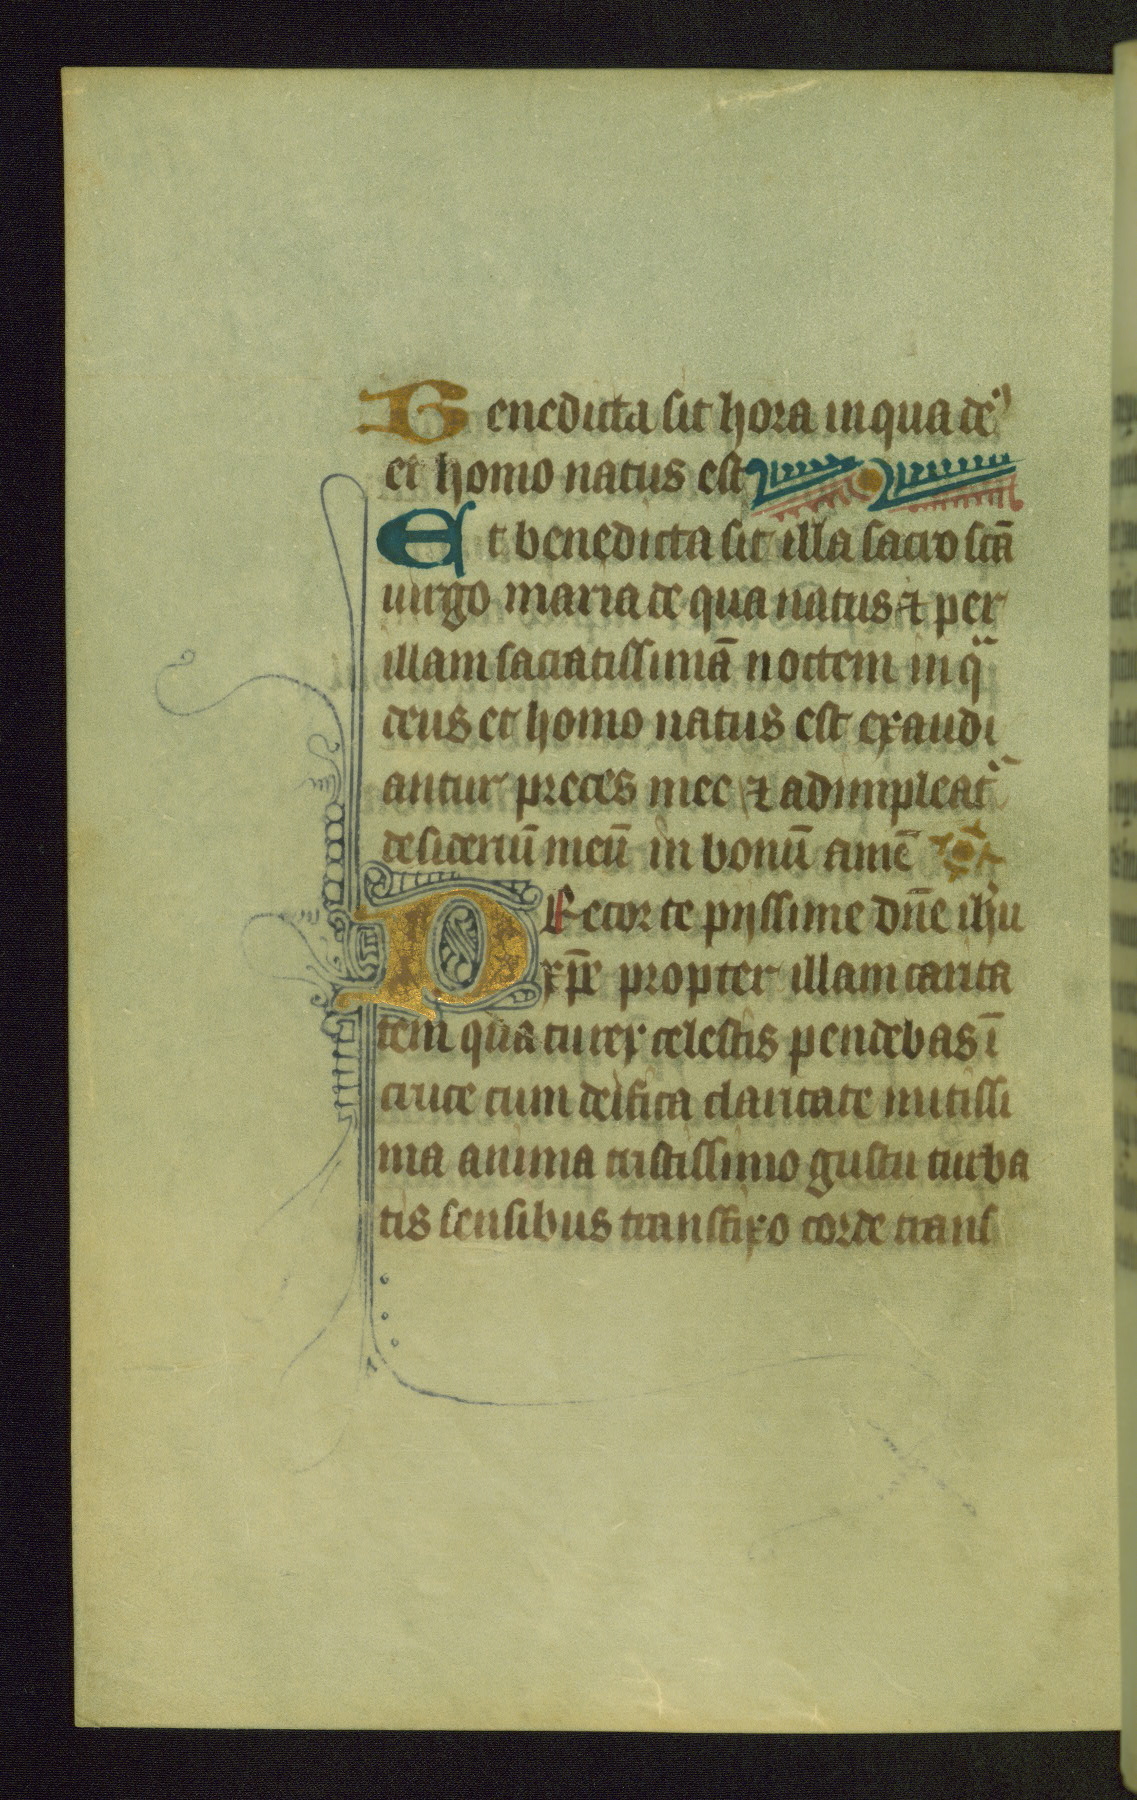 Benedicta sit hora in qua deꝰ
et homo natus est
Et benedicta sit illa sacro scā
uirgo maria de qua natus ⁊ per
illam sacratissimā noctem in qᵃ
deus et homo natus est exaudi
antur preces mee ⁊ adimpleat᷑
desideriū meū in bonū amē
Precor te pijssime dn̄e ih̄u
xp̄e propter illam carita
tem qua tu rex celestis pendebas ī
cruce cum deifica claritate mitissi
ma anima tristissimo gustu turba
tis sensibus transfixo corde trans